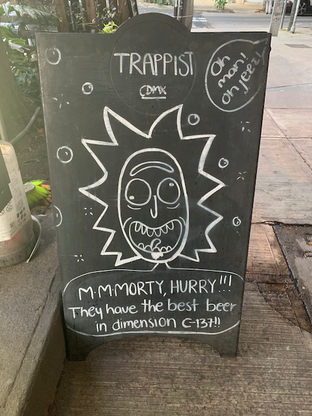 TRAPPIST
CDMX
Oh
man!
Oh jeez!
M-M-MORTY, HURRY!!!
They have the best beer
in dimension C-137!!